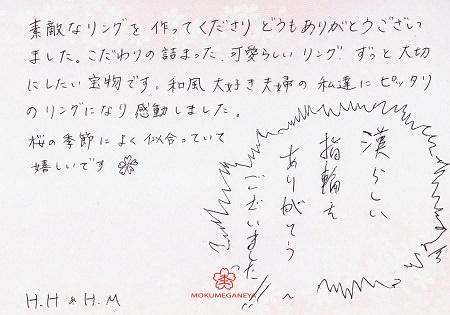 素敵なリングを作ってくださり どうもありがとうござい
ました。こだわりの詰まった、可愛らしいリング ずっと大切
にしたい宝物です。和風大好き夫婦の私達にピッタリ
のリングになり感動しました。
桜の季節によく似合っていて
嬉しいです
漢らしい
指輪を
ありがとう
ございました!!
〜
H.H & H.M
MOKUMEGANEYA